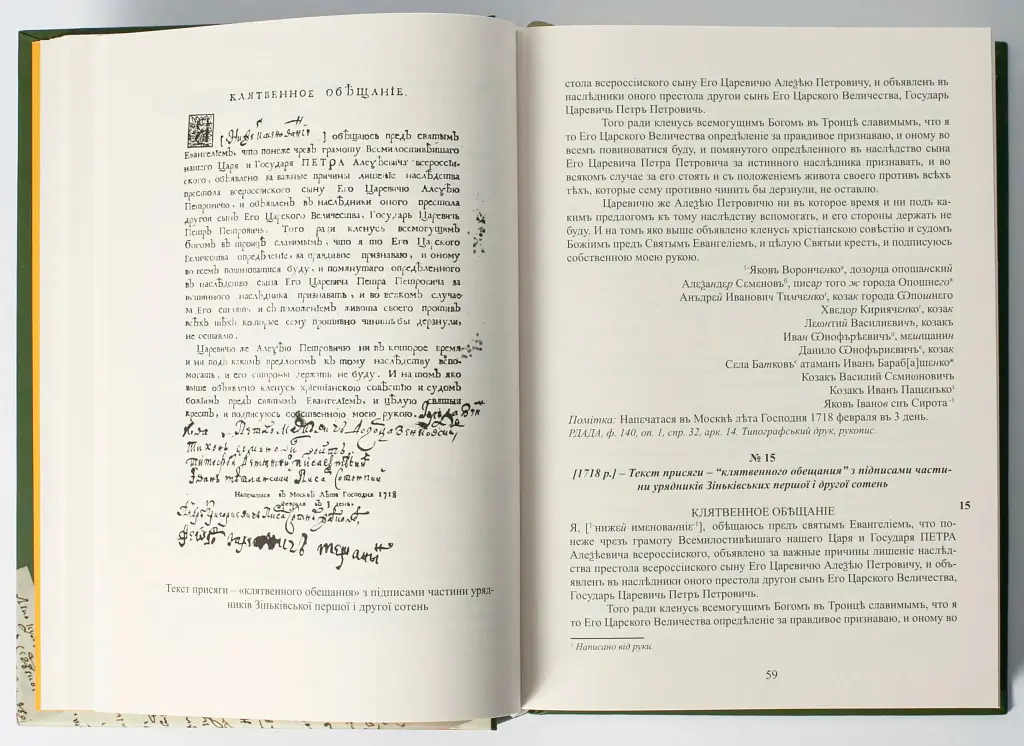 КЛЯТВЕННОЕ ОБѢЩАНІЕ.
обѣщаюсь предъ святымъ
Евангеліемъ, что понеже чрезъ грамоту Всемилостивѣйшаго
нашего Царя и Государя ПЕТРА Алеѯѣевича всеросіи-
ского, объявлено за важные причины лишеніе наслѣдства
престола всеросіиского сыну Его Царевичю Алеѯѣю
Петровичю, и объявленъ въ наслѣдники оного престола
другои сынъ Его Царского Величества, Государь Царевичь
Петръ Петровичь. Того ради кленусь всемогущимъ
богомъ въ троицѣ славимымъ, что я то Его Царского
Величества опредѣленіе, за правдивое признаваю, и оному
во всемъ повиноватися буду, и помянутаго опредѣленного
въ наслѣдство сына Его Царевича Петра Петровича за
истинного наслѣдника признавать, и во всякомъ случае
за Его стоять и съ положеніемъ живота своего противъ
всѣхъ тѣхъ которые сему противно чинить бы дерзнули,
не оставлю.
Царевичю же Алеѯѣю Петровичю ни въ которое время
и ни подъ какимъ предлогомъ къ тому наслѣдству вспо-
могать, и его стороны держать не буду. И на томъ яко
выше объявлено кленусь хрістіанскою совѣстію и судомъ
божіимъ предъ святымъ Евангеліемъ, и цѣлую святыи
крестъ, и подписуюсь собственною моею рукою.
Напечатася въ Москвѣ Лѣта Господня 1718
февраля въ 3 день.
Текст присяги – «клятвенного обещания» з підписами частини уряд-
ників Зіньківської першої і другої сотень
стола всероссіиского сыну Его Царевичю Алеѯѣю Петровичу, и объявленъ въ
наслѣдники оного престола другои сынъ Его Царского Величества, Государь
Царевичь Петръ Петровичь.
Того ради кленусь всемогущимъ Богомъ въ Троицѣ славимымъ, что я
то Его Царского Величества опредѣленіе за правдивое признаваю, и оному во
всемъ повиноватися буду, и помянутого опредѣленного въ наслѣдство сына
Его Царевича Петра Петровича за истинного наслѣдника признавати, и во
всякомъ случае за его стоять и съ положеніемъ живота своего противъ всѣхъ
тѣхъ, которые сему противно чинить бы дерзнули, не оставлю.
Царевичю же Алеѯѣю Петровичю ни въ которое время и ни подъ ка-
кимъ предлогомъ къ тому наслѣдству вспомогать, и его стороны держать не
буду. И на томъ яко выше объявлено кленусь хрістіанскою совѣстію и судомъ
Божіимъ предъ Святымъ Евангеліемъ, и цѣлую Святыи крестъ, и подписуюсь
собственною моею рукою.
¹⁻Яковъ Воронченкоᵃ, дозорца опошанский
Алеѯандер Семеновᵇ, писар того ж города Опошнегоᵛ
Анъдрей Иванович Тимченкоᵍ, козак города Ѿпошнего
Хведор Кириячєнкоᵍ, козак
Леонтий Василиевич, козакъ
Иван Ѿнофъръевичъ, мещанин
Данило Ѿнофъриевичъ, козак
Села Батковъ атаманъ Иванъ Бараб[а]шенко
Козакъ Василий Семионовичъ
Козакъ Иванъ Пащенько
Яковъ Іванов снъ Сирота⁻¹
Помітка: Напечатася въ Москвѣ лѣта Господня 1718 февраля въ 3 день.
РДАДА, ф. 140, оп. 1, спр. 32, арк. 14. Типографський друк, рукопис.
№ 15
[1718 р.] – Текст присяги – “клятвенного обещания” з підписами части-
ни урядників Зіньківських першої і другої сотень
15
КЛЯТВЕННОЕ ОБѢЩАНІЕ
Я, [¹⁻нижей именованніе⁻¹], обѣщаюсь предъ святымъ Евангеліемъ, что по-
неже чрезъ грамоту Всемилостивѣишаго нашего Царя и Государя ПЕТРА
Алеѯѣевича всероссиского, объявлено за важные причины лишеніе наслѣд-
ства престола всероссіиского сыну Его Царевичю Алеѯѣю Петровичу, и объ-
явленъ въ наслѣдники оного престола другои сынъ Его Царского Величества,
Государь Царевичь Петръ Петровичь.
Того ради кленусь всемогущимъ Богомъ въ Троицѣ славимымъ, что я
то Его Царского Величества опредѣленіе за правдивое признаваю, и оному во
¹ Написано від руки.
59